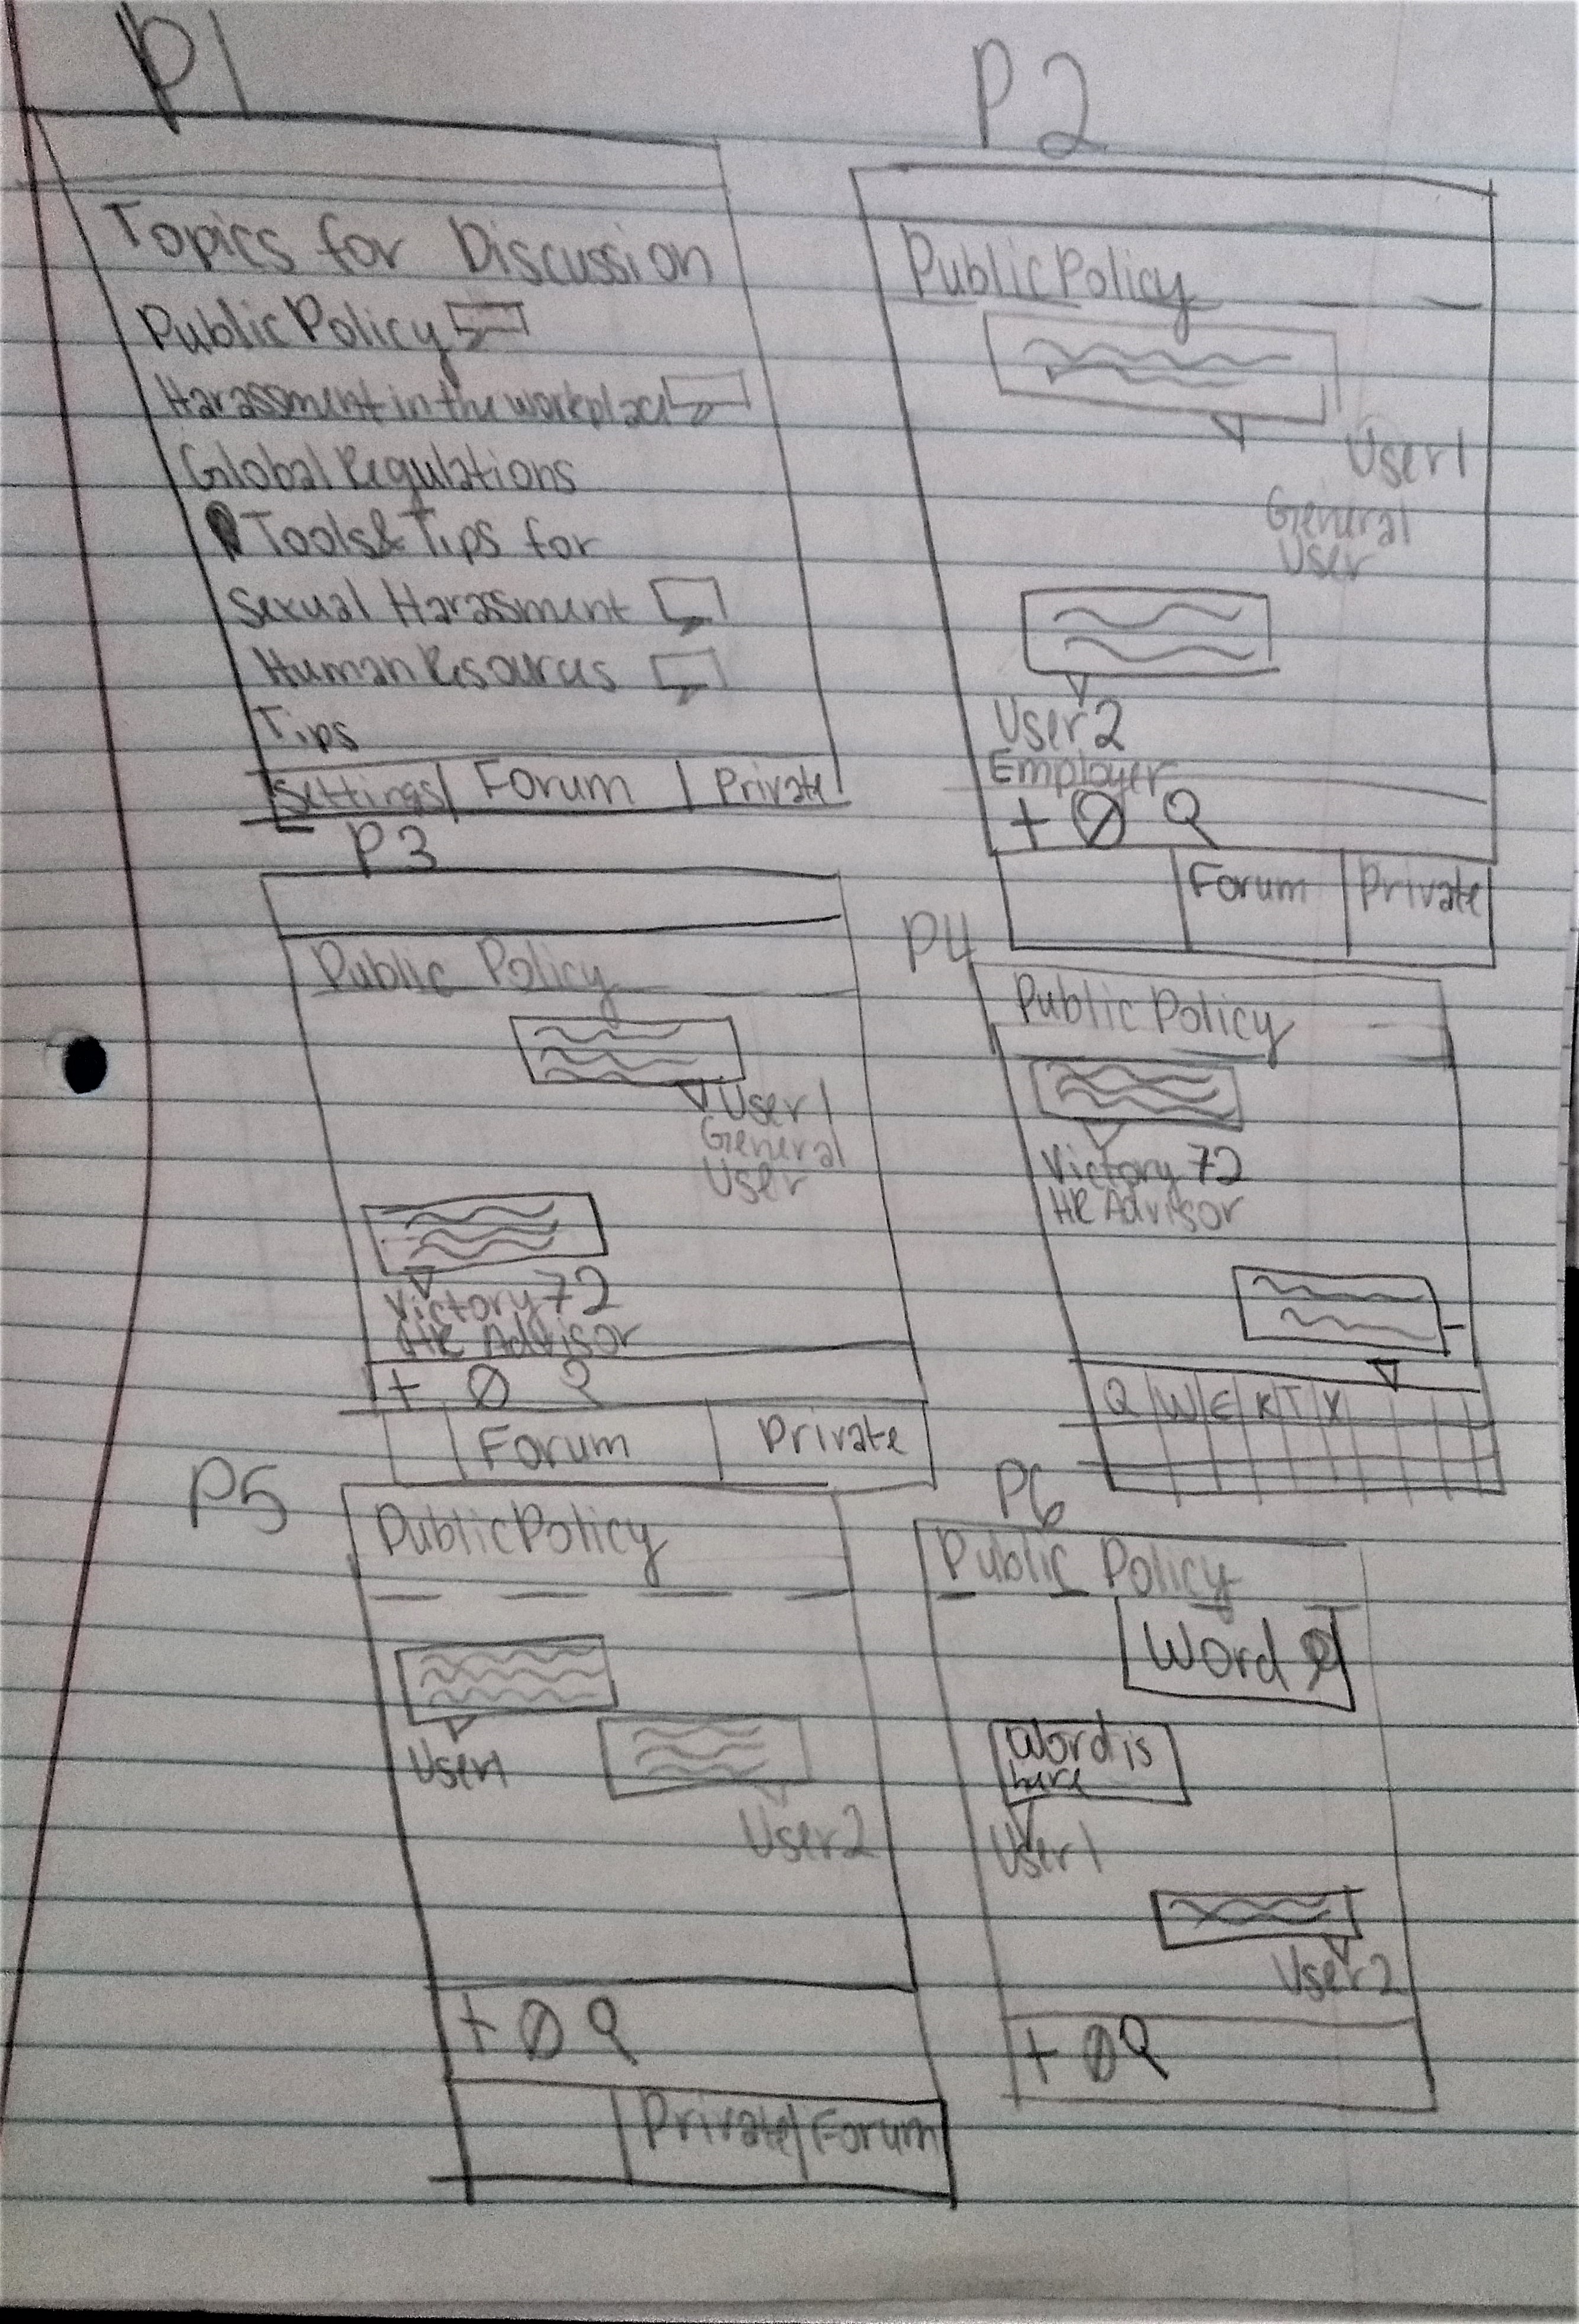 P1
Topics for Discussion
Public Policy
Harassment in the workplace
Global Regulations
Tools & Tips for
Sexual Harassment
Human Resources
Tips
Settings | Forum | Private
P2
Public Policy
User 1
General
User
User 2
Employer
+ Ø Q
Forum | Private
P3
Public Policy
User 1
General
User
Victory 72
HR Advisor
+ Ø Q
Forum | Private
P4
Public Policy
Victory 72
HR Advisor
Q | W | E | R | T | Y
P5
Public Policy
User 1
User 2
+ Ø Q
Private | Forum
P6
Public Policy
Word
Word is
here
User 1
User 2
+ Ø Q